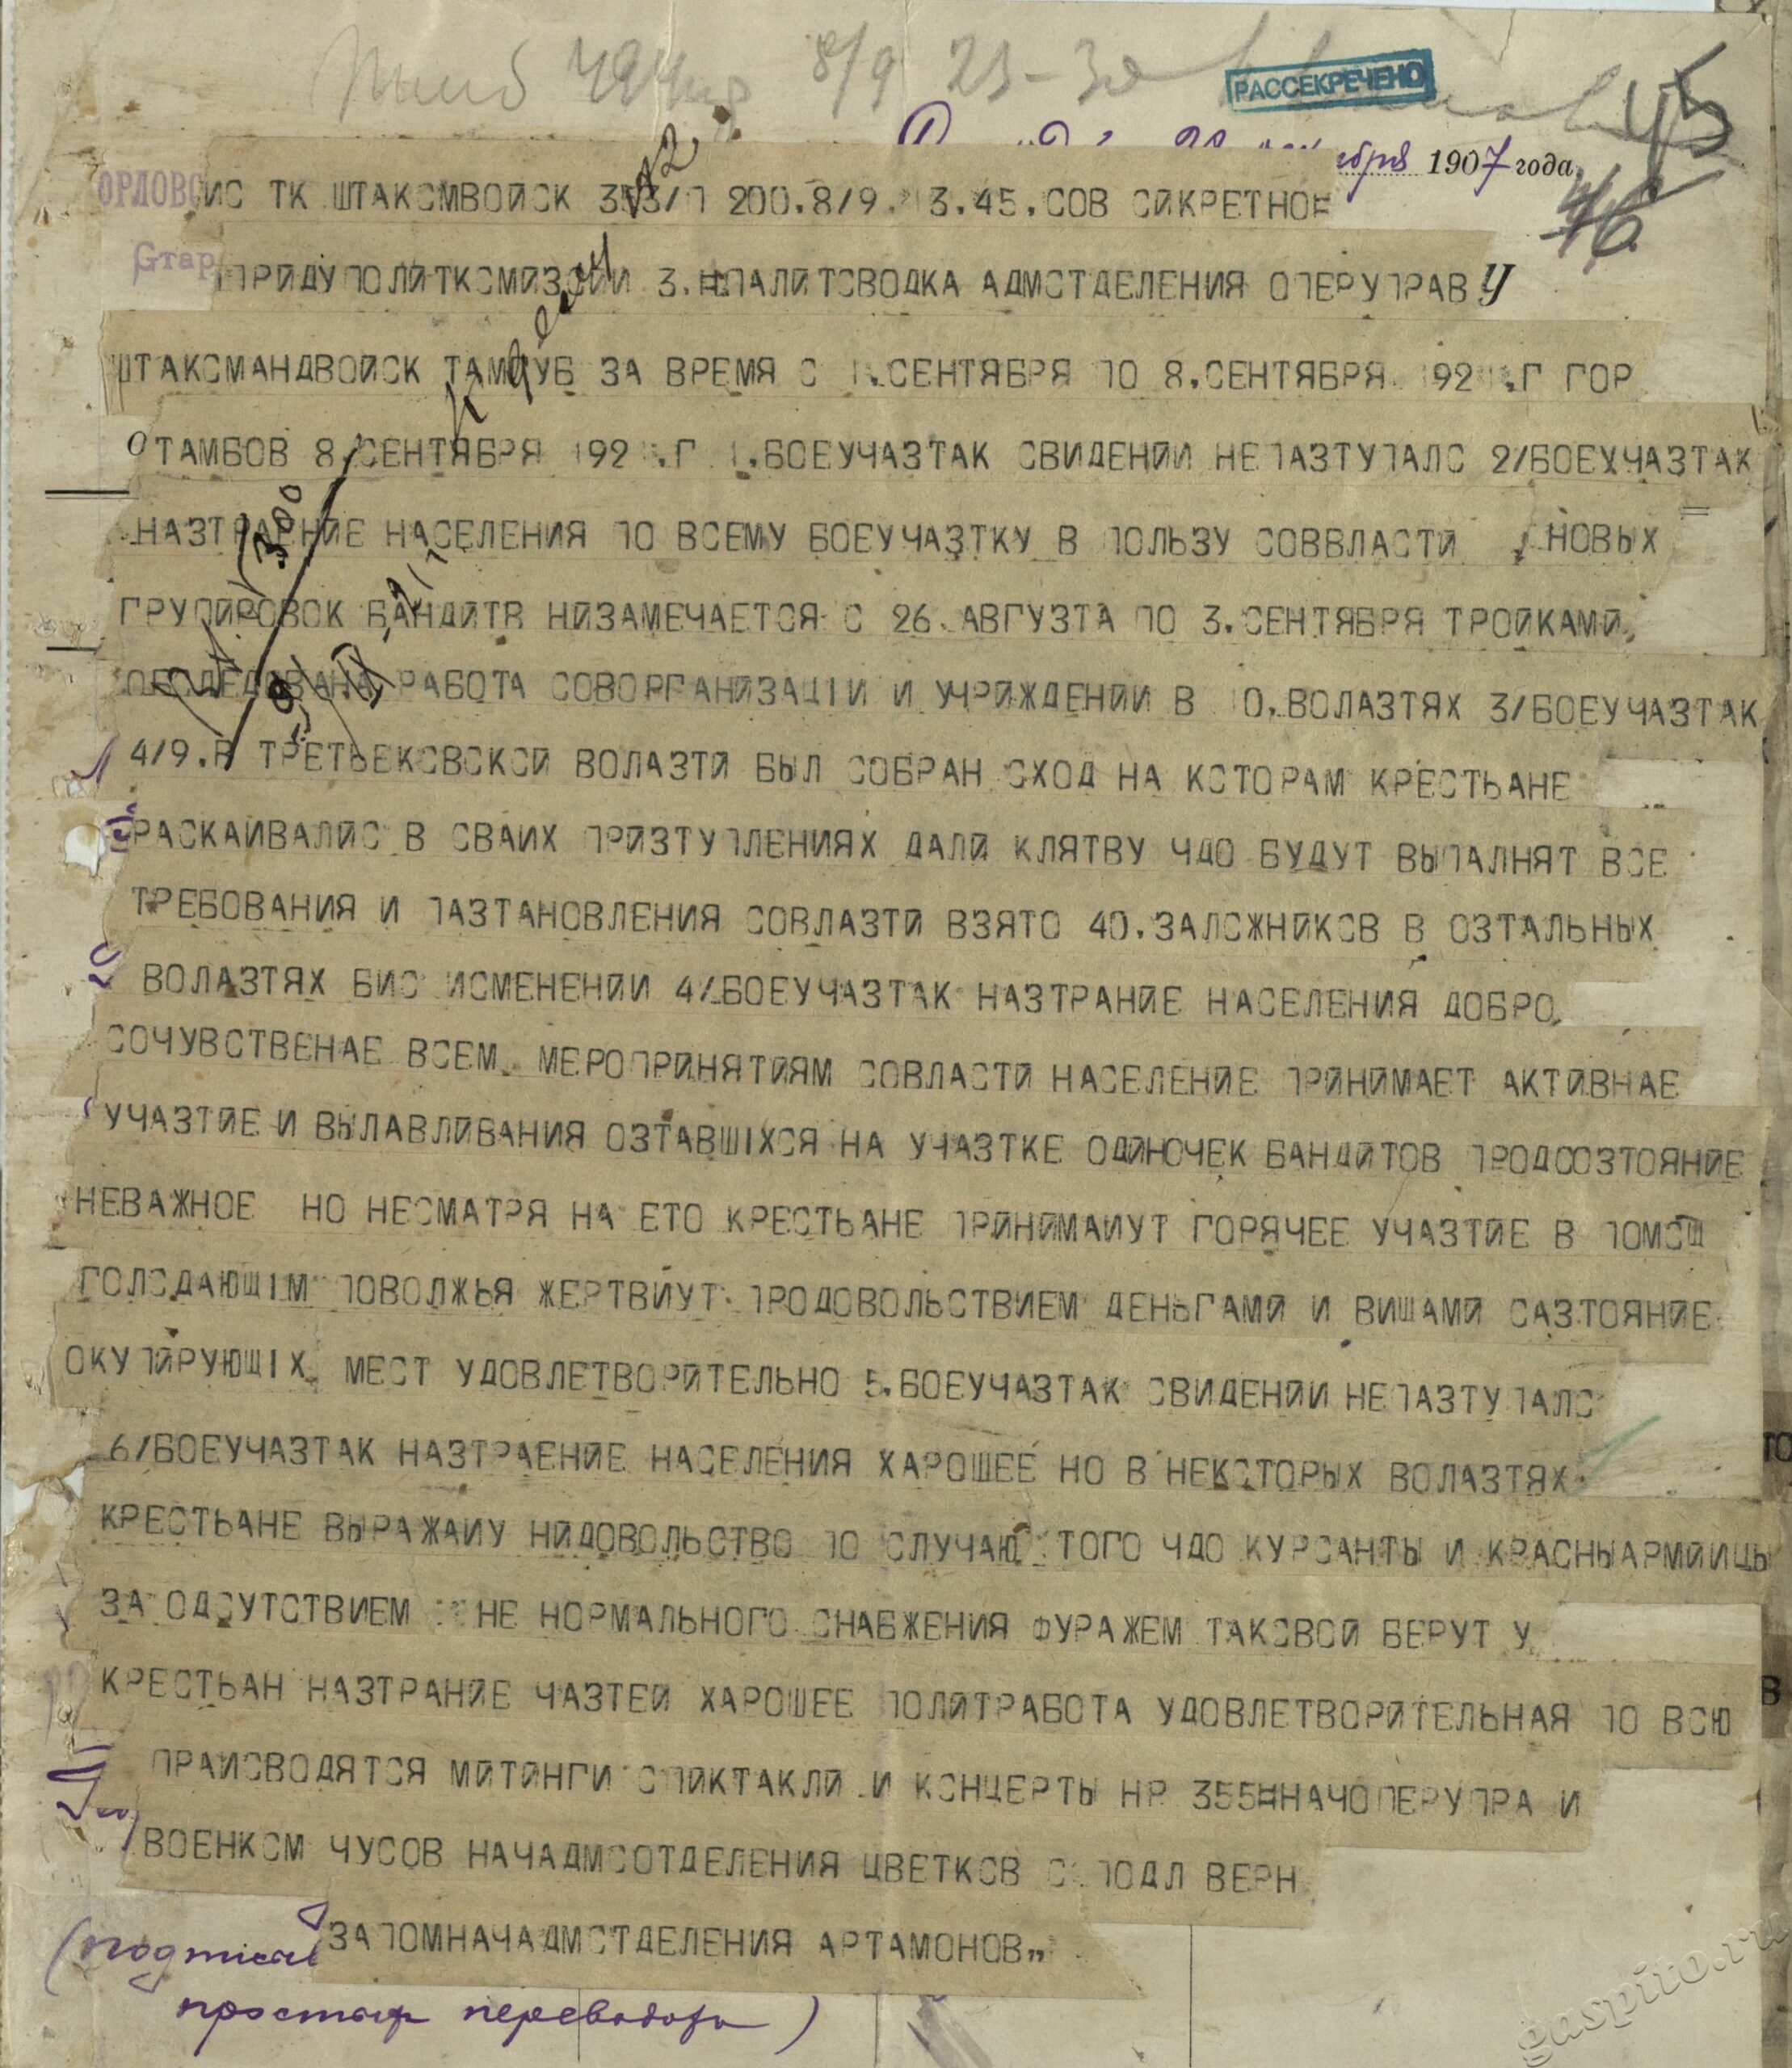 8/9 23-30
РАССЕКРЕЧЕНО
45
46
ября 1907 года
ОРЛОВС
ИС ТК ШТАКОМВОЙСК 353/П 200.8/9. 3.45.СОВ СИКРЕТНОЕ
Стар
ПРИДУПОЛИТКОМИЗОИИ 3. ПАЛИТСВОДКА АДМОТДЕЛЕНИЯ ОПЕРУПРАВ У
ШТАКОМАНДВОЙСК ТАМГУБ ЗА ВРЕМЯ С 1.СЕНТЯБРЯ ПО 8.СЕНТЯБРЯ 1921.Г ГОР
О ТАМБОВ 8 СЕНТЯБРЯ 1921.Г 1.БОЕУЧАЗТАК СВИДЕНИИ НЕПАЗТУПАЛО 2/БОЕУЧАЗТАК
НАЗТРАЕНИЕ НАСЕЛЕНИЯ ПО ВСЕМУ БОЕУЧАЗТКУ В ПОЛЬЗУ СОВВЛАСТИ НОВЫХ
ГРУПИРОВОК БАНДИТВ НИЗАМЕЧАЕТСЯ С 26 АВГУЗТА ПО 3.СЕНТЯБРЯ ТРОЙКАМИ
ОБСЛЕДОВАНА РАБОТА СОВОРГАНИЗАЦIИ И УЧРИЖДЕНИИ В 10.ВОЛАЗТЯХ 3/БОЕУЧАЗТАК
4/9.В ТРЕТЬЕКОВСКОЙ ВОЛАЗТИ БЫЛ СОБРАН СХОД НА КОТОРАМ КРЕСТЬАНЕ
РАСКАИВАЛИС В СВАИХ ПРИЗТУПЛЕНИЯХ ДАЛИ КЛЯТВУ ЧДО БУДУТ ВЫПАЛНЯТ ВСЕ
ТРЕБОВАНИЯ И ПАЗТАНОВЛЕНИЯ СОВЛАЗТИ ВЗЯТО 40.ЗАЛОЖНИКОВ В ОЗТАЛЬНЫХ
ВОЛАЗТЯХ БИС ИСМЕНЕНИИ 4/БОЕУЧАЗТАК НАЗТРАНИЕ НАСЕЛЕНИЯ ДОБРО
СОЧУВСТВЕНАЕ ВСЕМ МЕРОПРИНЯТИЯМ СОВЛАСТИ НАСЕЛЕНИЕ ПРИНИМАЕТ АКТИВНАЕ
УЧАЗТИЕ И ВЫЛАВЛИВАНИЯ ОЗТАВШIХСЯ НА УЧАЗТКЕ ОДИНОЧЕК БАНДИТОВ ПРОДСОЗТОЯНИЕ
НЕВАЖНОЕ НО НЕСМАТРЯ НА ЕТО КРЕСТЬАНЕ ПРИНИМАИУТ ГОРЯЧЕЕ УЧАЗТИЕ В ПОМОЩ
ГОЛОДАЮЩIМ ПОВОЛЖЬЯ ЖЕРТВИУТ ПРОДОВОЛЬСТВИЕМ ДЕНЬГАМИ И ВИЩАМИ САЗТОЯНИЕ
ОКУПИРУЮЩIХ МЕСТ УДОВЛЕТВОРИТЕЛЬНО 5.БОЕУЧАЗТАК СВИДЕНИИ НЕПАЗТУПАЛО
6/БОЕУЧАЗТАК НАЗТРАЕНИЕ НАСЕЛЕНИЯ ХАРОШЕЕ НО В НЕКОТОРЫХ ВОЛАЗТЯХ
КРЕСТЬАНЕ ВЫРАЖАИУ НИДОВОЛЬСТВО ПО СЛУЧАЮ ТОГО ЧДО КУРСАНТЫ И КРАСНЫАРМИИЦЫ
ЗА ОДСУТСТВИЕМ НЕ НОРМАЛЬНОГО СНАБЖЕНИЯ ФУРАЖЕМ ТАКОВОЙ БЕРУТ У
КРЕСТЬАН НАЗТРАНИЕ ЧАЗТЕЙ ХАРОШЕЕ ПОЛИТРАБОТА УДОВЛЕТВОРИТЕЛЬНАЯ ПО ВСЮ
ПРАИСВОДЯТСЯ МИТИНГИ СПИКТАКЛИ И КОНЦЕРТЫ НР 355 НАЧОПЕРУПРА И
ВОЕНКОМ ЧУСОВ НАЧАДМСОТДЕЛЕНИЯ ЦВЕТКОВ С ПОДЛ ВЕРН
ЗАПОМНАЧАДМОТДЕЛЕНИЯ АРТАМОНОВ„
(подписал
gaspito.ru